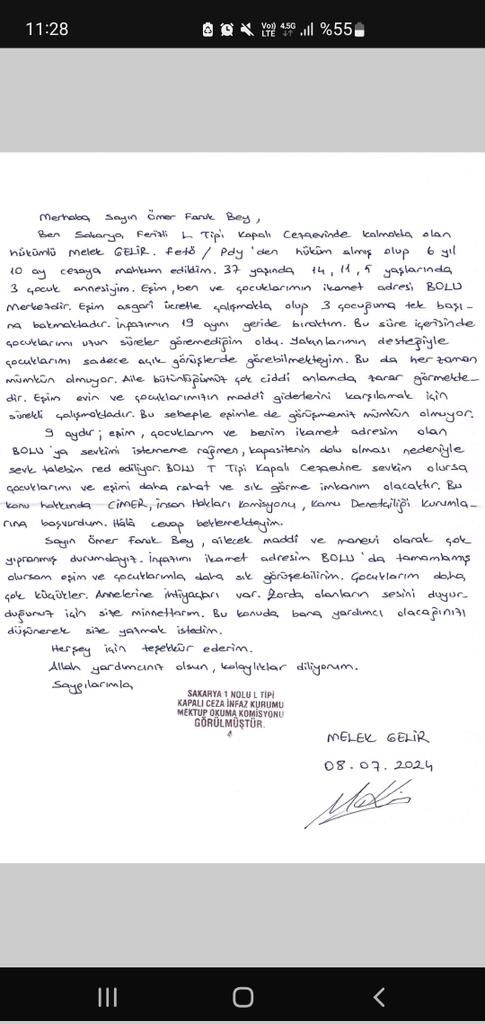 11:28
Vo)) LTE 4.5G %55
Merhaba Sayın Ömer Faruk Bey,
Ben Sakarya Ferizli L Tipi Kapalı Cezaevinde kalmakta olan
hükümlü Melek GELİR. Fetö / Pdy'den hüküm almış olup 6 yıl
10 ay cezaya mahkum edildim. 37 yaşında 14, 11, 5 yaşlarında
3 çocuk annesiyim. Eşim, ben ve çocuklarımın ikamet adresi BOLU
Merkezdir. Eşim asgari ücretle çalışmakta olup 3 çocuğuma tek başı-
na bakmaktadır. İnfazımın 19 ayını geride bıraktım. Bu süre içerisinde
çocuklarımı uzun süreler göremediğim oldu. Yakınlarımın desteğiyle
çocuklarımı sadece açık görüşlerde görebilmekteyim. Bu da her zaman
mümkün olmuyor. Aile bütünlüğümüz çok ciddi anlamda zarar görmekte-
dir. Eşim evin ve çocuklarımızın maddi giderlerini karşılamak için
sürekli çalışmaktadır. Bu sebeple eşimle de görüşmemiz mümkün olmuyor.
9 aydır; eşim, çocuklarım ve benim ikamet adresim olan
BOLU'ya sevkimi istememe rağmen, kapasitenin dolu olması nedeniyle
sevk talebim red ediliyor. BOLU T Tipi Kapalı Cezaevine sevkim olursa
çocuklarımı ve eşimi daha rahat ve sık görme imkanım olacaktır. Bu
konu hakkında CİMER, İnsan Hakları Komisyonu, Kamu Denetçiliği Kurumla-
rına başvurdum. Hâlâ cevap beklemekteyim.
Sayın Ömer Faruk Bey, ailecek maddi ve manevi olarak çok
yıpranmış durumdayız. İnfazımı ikamet adresim BOLU'da tamamlamış
olursam eşim ve çocuklarımla daha sık görüşebilirim. Çocuklarım daha
çok küçükler. Annelerine ihtiyaçları var. Zorda olanların sesini duyur-
duğunuz için size minnettarım. Bu konuda bana yardımcı olacağınızı
düşünerek size yazmak istedim.
Herşey için teşekkür ederim.
Allah yardımcınız olsun, kolaylıklar diliyorum.
Saygılarımla
SAKARYA 1 NOLU L TİPİ
KAPALI CEZA İNFAZ KURUMU
MEKTUP OKUMA KOMİSYONU
GÖRÜLMÜŞTÜR.
MELEK GELİR
08.07.2024